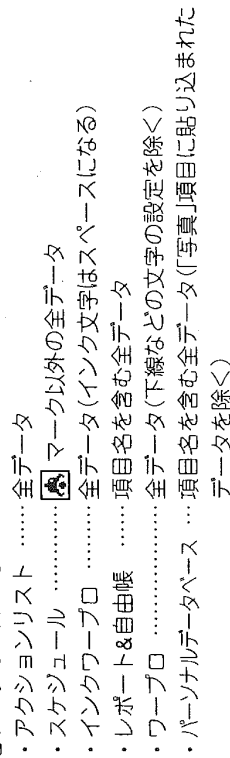 ・アクションリスト ……全データ
・スケジュール ………… マーク以外の全データ
・インクワープロ ………全データ(インク文字はスペースになる)
・レポート&自由帳 ……項目名を含む全データ
・ワープロ ………………全データ(下線などの文字の設定を除く)
・パーソナルデータベース …項目名を含む全データ(「写真」項目に貼り込まれた
データを除く)